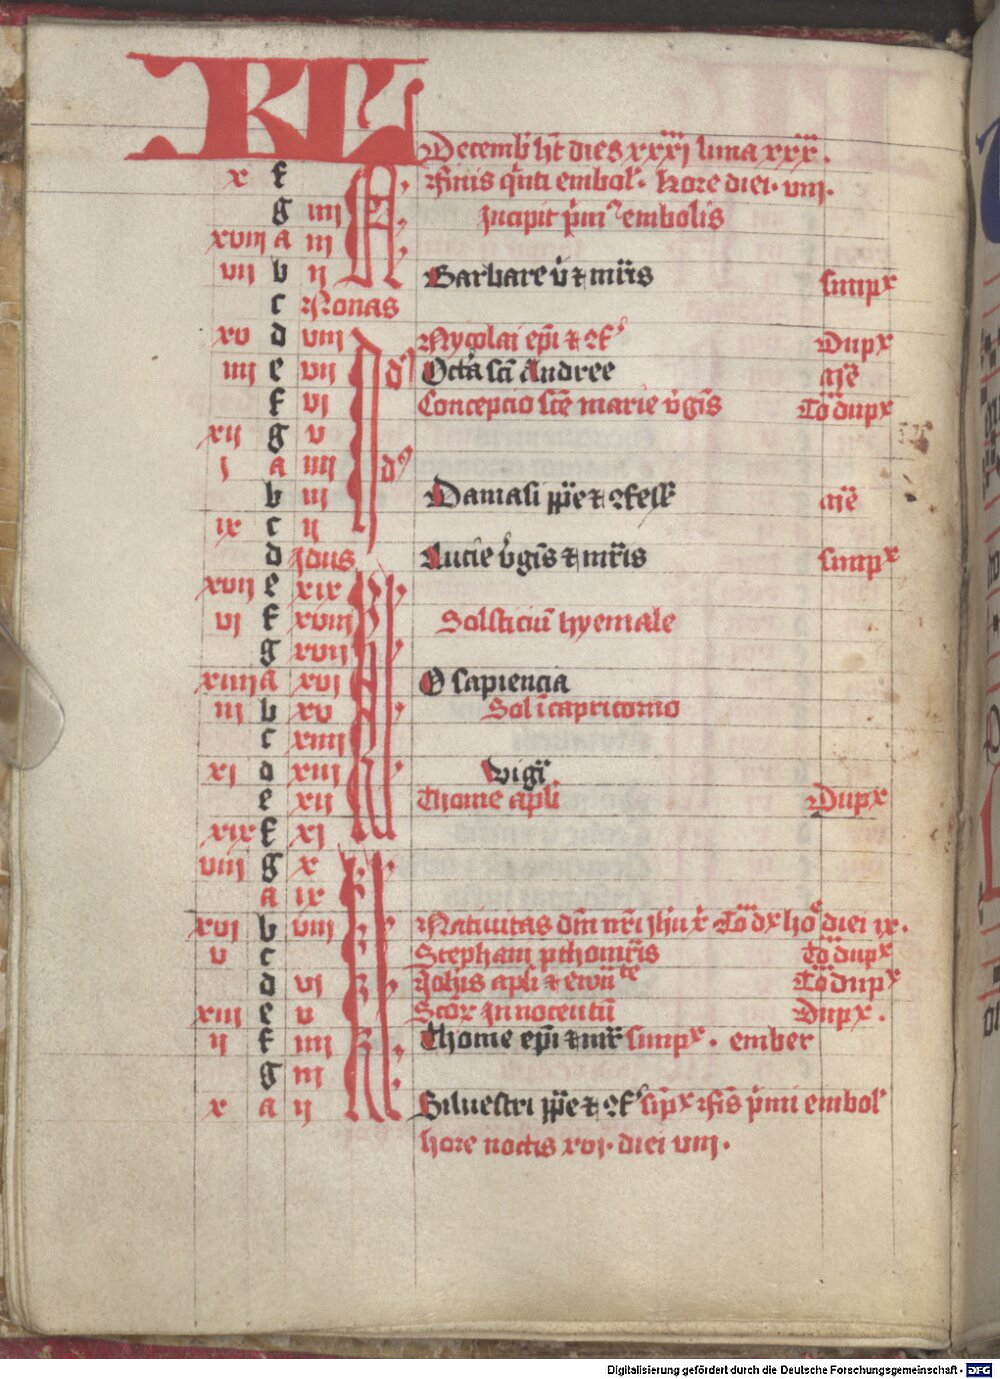 KL
Decembꝛ hꝫ dies xxxi luna xxx.
x f Finis q̃rti embolꝰ. Hore diei. viii.
g iiii Incipit p̃mꝰ embolis
xviii a iii
vii b ii Barbare v̾ ⁊ mr̄is simpx
c Nonas
xv d viii Nycolai ep̄i ⁊ ↄfꝰ Dupx
iiii e vii dꝰ Octa sc̄i Andree
f vi Concepcio sc̄e marie v̾gīs Tō dupx
xii g v
i a iiii dꝰ
b iii Damasi pp̄e ⁊ ↄfess
ix c ii
d Idus Lucie v̾gīs ⁊ mr̄is simpx
xvii e xix
vi f xviii Solsticiū hyemale
g xvii
xiiii a xvi O sapiencia
iii b xv Sol ī capricorno
c xiiii
xi d xiii vigī
e xii Thome apl̄i Dupx
xix f xi
viii g x
a ix
xvi b viii Natiuitas dn̄i nr̄i ih̄u x̄ Tō dx ho diei ix.
v c Stephani pthomr̄is Tō dupx
d vi Joh̄is apl̄i ⁊ ewā̄te Tō dupx
xiii e v Scōꝝ Innocentū Dupx.
ii f iiii Thome ep̄i ⁊ mr̄ simpx. ember
g iii
x a ii Siluestri pp̄e ⁊ ↄfꝰ sīpx Fīs p̃mi embolꝰ
hore noctis xvi. diei viii.
Digitalisierung gefördert durch die Deutsche Forschungsgemeinschaft - DFG